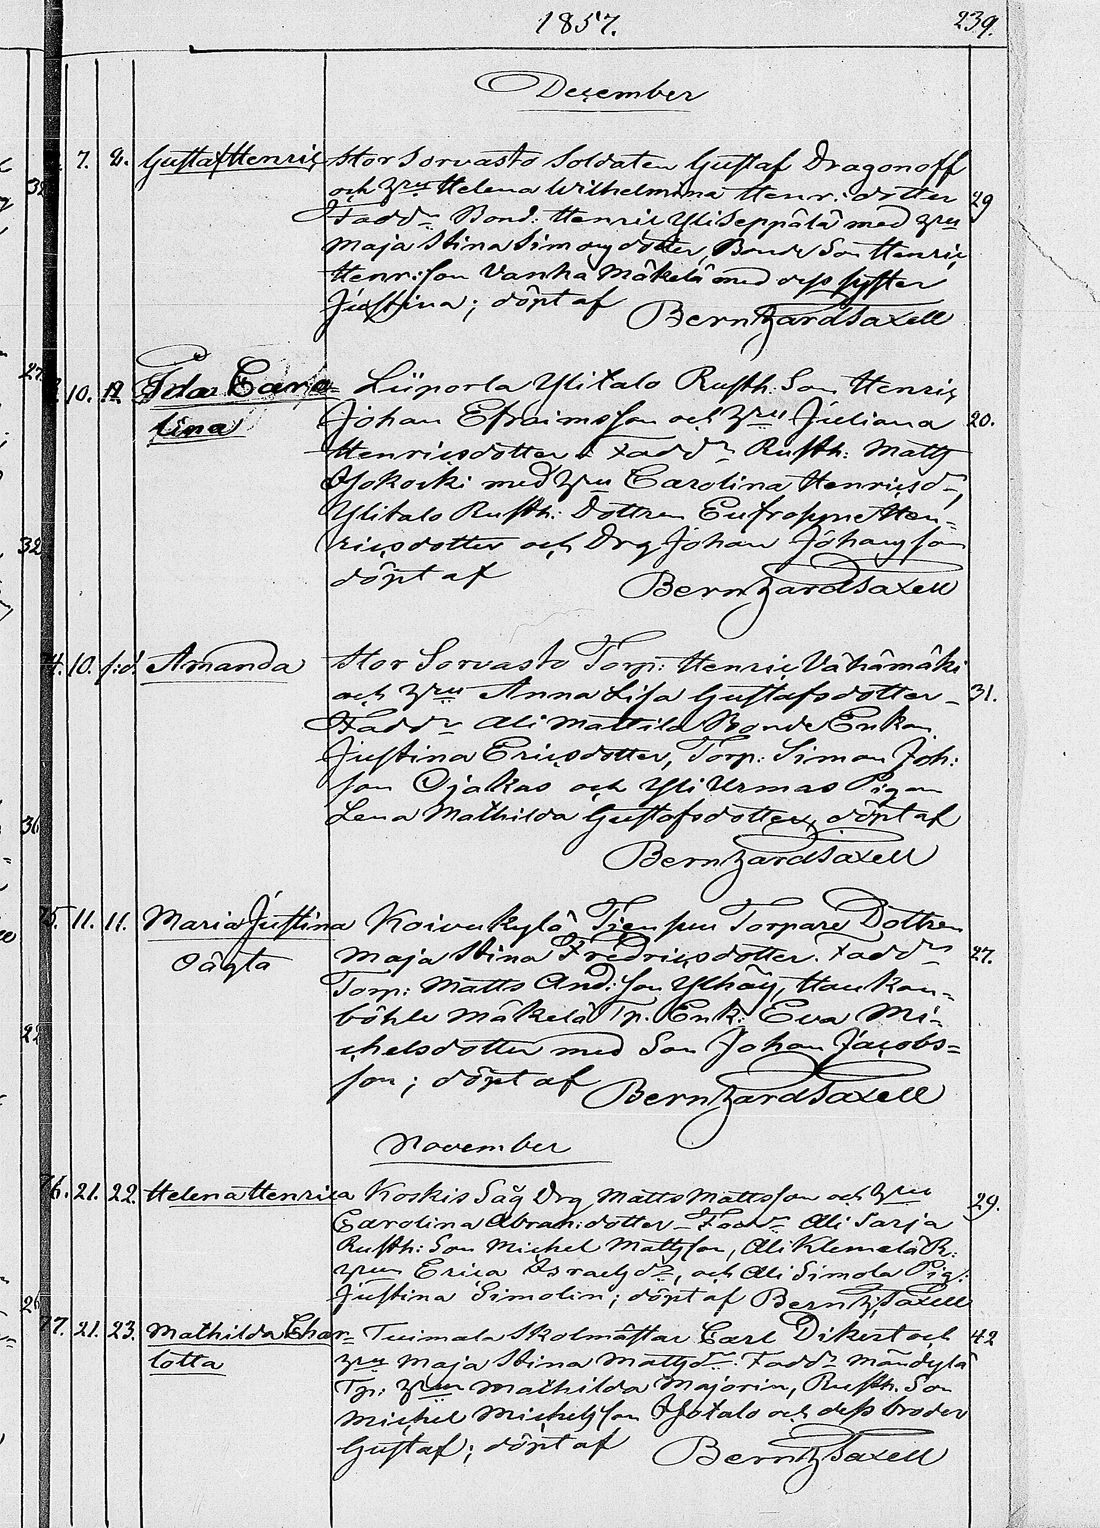 1857. 239.
December
7. 8. Gustaf Henric Stor Sorvasto Soldaten Gustaf Dragonoff
och Hru Helena Wilhelmina Henr: dotter 29
Fadd: Bond: Henric Yliseppälä med hru
Maja Stina Simonsdotter, Bonde Son Henric
Henr:son Vanha Mäkelä med dess syster
Justina; döpt af Bernhard Saxell
10. 12. Ida Caro= Liiporla Ylitalo Rusth: Son Henric
lina Johan Efraimsson och hru Juliana 20.
Henricsdotter. Fadd: Rusth: Matts
Isokoski med hru Carolina Henricsd:,
Ylitalo Rusth: Dottren Eufrosyne Hen=
ricsdotter och Drg Johan Johansson
döpt af Bernhard Saxell
74. 10. s:d. Amanda Stor Sorvasto Torp: Henric Vähämäki
och hru Anna Lisa Gustafsdotter 31.
Fadd: Ali Mattila Bonde Enkan
Justina Ericsdotter, Torp: Simon Joh:
son Ojakas och Yli Urmas Pigan
Lena Mathilda Gustafsdotter, döpt af
Bernhard Saxell
75. 11. 11. Maria Justina Koivukylä Torpare Dottren
Oägta Maja Stina Fredricsdotter. Fadd: 27.
Torp: Matts And:son
böhle Mäkelä Tp. Enk: Eva Mi=
chelsdotter med Son Johan Jacobs=
son; döpt af Bernhard Saxell
November
76. 21. 22. Helena Henrica Koskis Såg Drg Matts Mattsson och hru 29.
Carolina Abrah:dotter Fadd: Ali Sarja
Rusth: Son Michel Mattsson, Ali Klemelä R:
hru Erica Israelsd:, och Ali Simola Pig:
Justina Simolin; döpt af Bernh. Saxell
77. 21. 23. Mathilda Char= Tuimala Skolmästar Carl Dikert och 42
lotta hru Maja Stina Mattsd: Fadd: Mändylä
Tp: hru Mathilda Majorin, Rusth. Son
Michel Michelsson Isotalo och dess broder
Gustaf; döpt af Bernh. Saxell